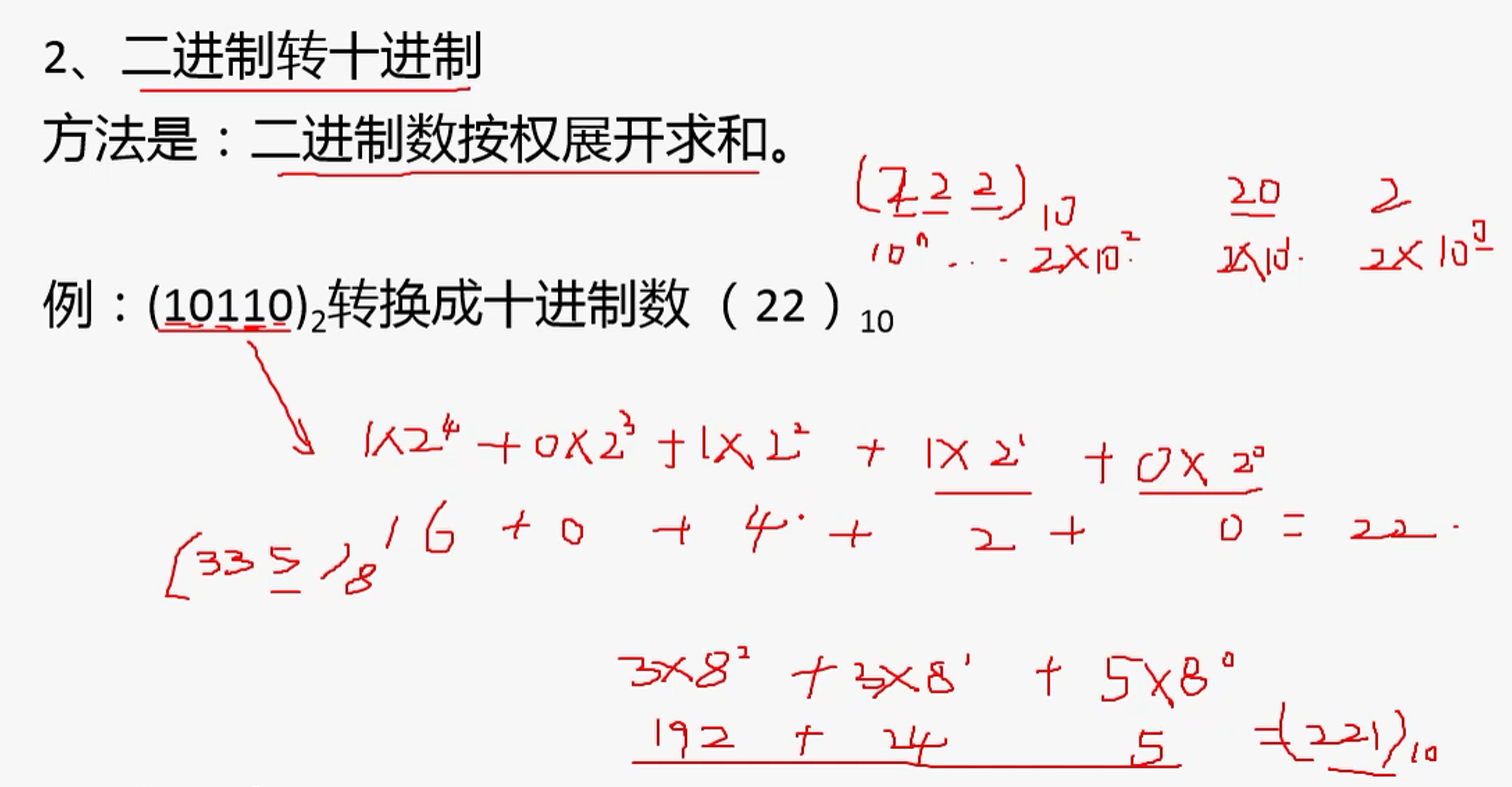 2、二进制转十进制
方法是：二进制数按权展开求和。
(222)₁₀ 20 2
10ⁿ ... 2×10² 2×10¹ 2×10⁰
例：(10110)₂转换成十进制数（22）₁₀
1×2⁴+0×2³+1×2²+1×2¹+0×2⁰
16+0+4+2+0=22
(335)₈
3×8²+3×8¹+5×8⁰
192+24 5 =(221)₁₀